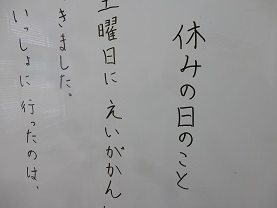 休みの日のこと
土曜日にえいがかん
きました。
いっしょに行ったのは、